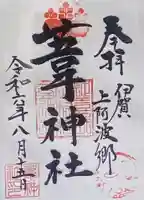 奉拝
伊賀
上阿波郷
葦神社
令和六年八月十五日